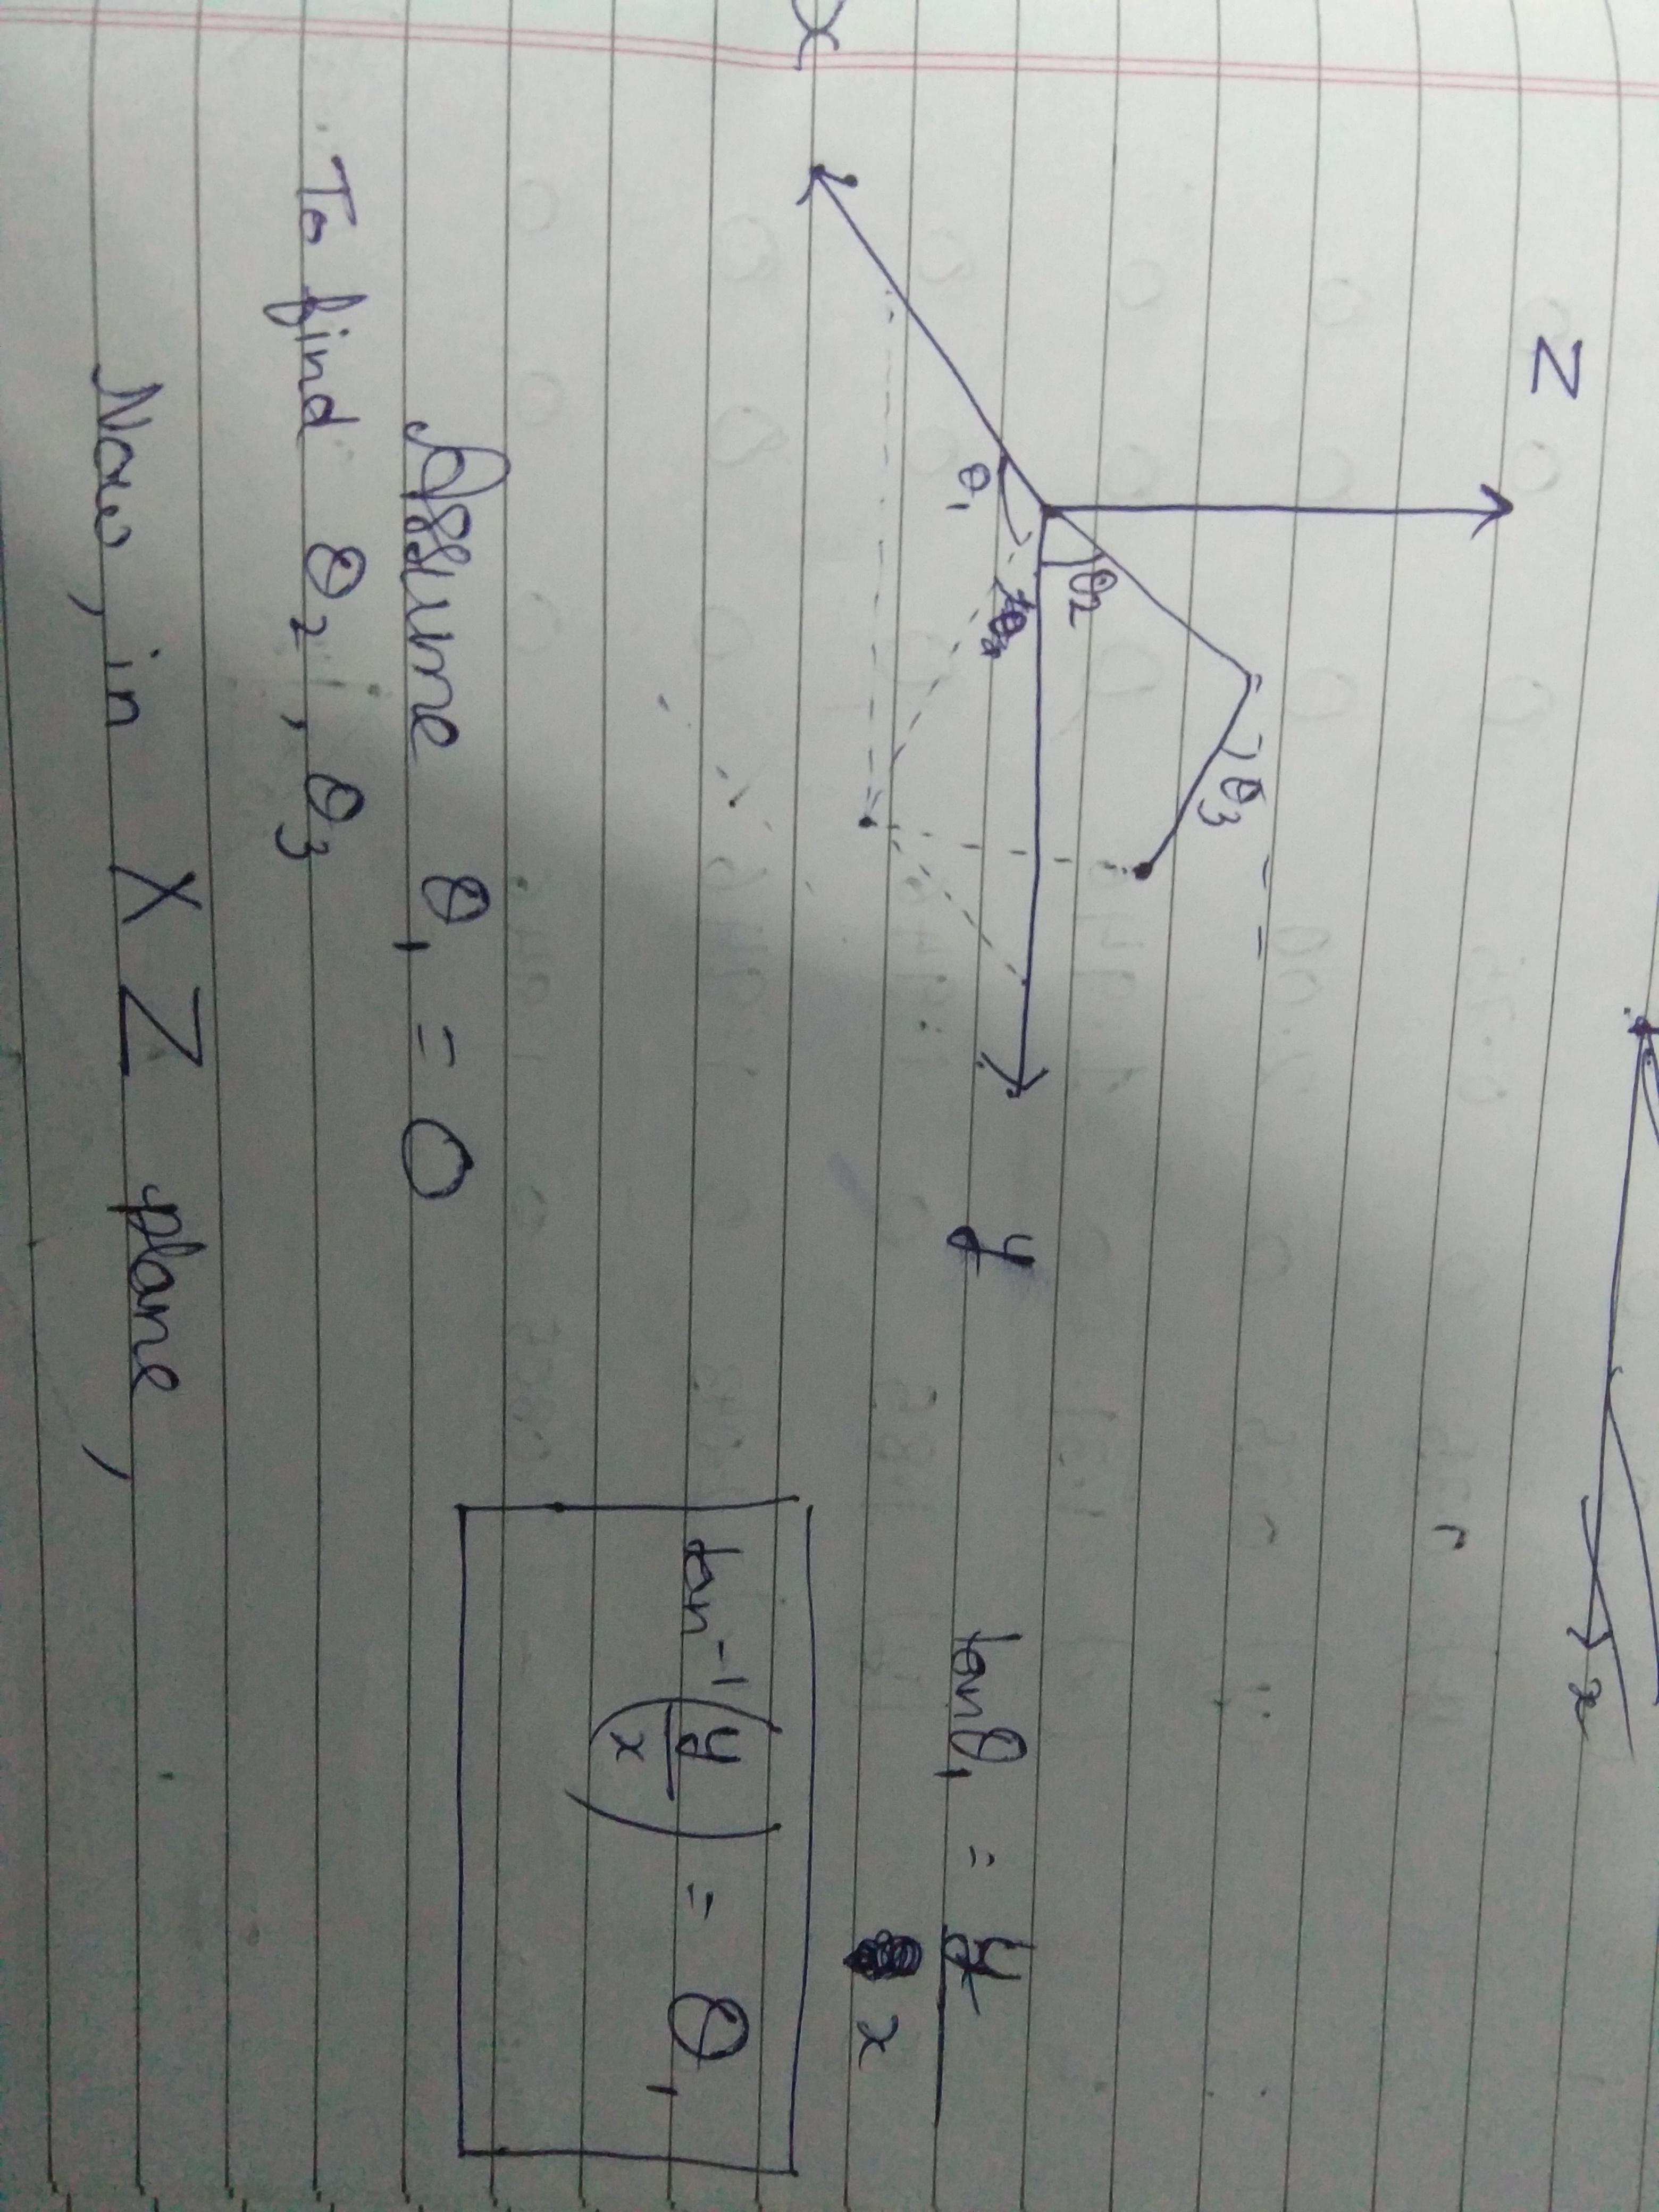 Z
θ2
θ3
θ1
y
X
x
tanθ1 = y
x
tan⁻¹(y/x) = θ1
Assume θ1 = 0
To find θ2, θ3
Now, in XZ plane,